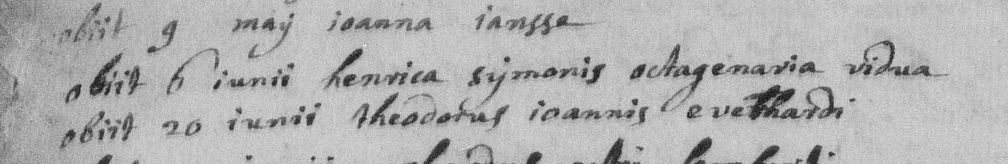 obiit 9 maÿ ioanna iansse
obiit 6 iunii henrica sÿmonis octagenaria vidua
obiit 20 iunii theodorus ioannis everhardi